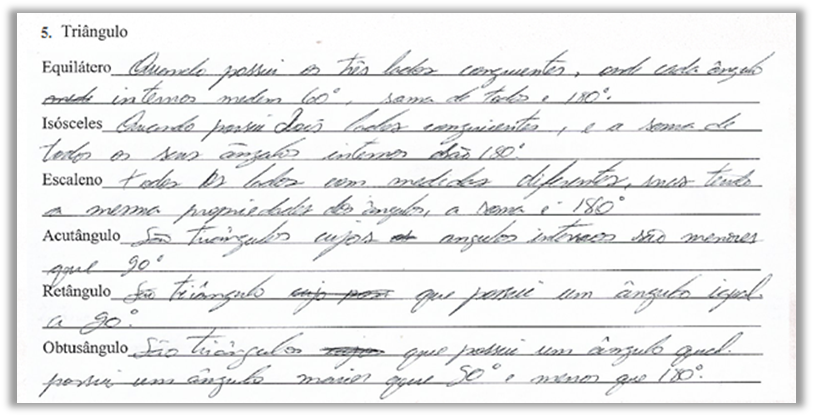 5. Triângulo
Equilátero Quando possui os três lados congruentes, onde cada ângulo
internos medem 60°, soma de todos é 180°.
Isósceles Quando possui Dois lados congruentes, e a soma de
todos os seus ângulos internos são 180°
Escaleno todos os lados com medidas diferentes, mas tendo
a mesma propriedades dos ângulos, a soma é 180°
Acutângulo São triângulos cujos angulos internos são menores
que 90°
Retângulo triângulo que possui um ângulo igual
a 90°.
Obtusângulo São triângulos que possui um ângulo qual
possui um ângulo maior que 90° e menor que 180°.